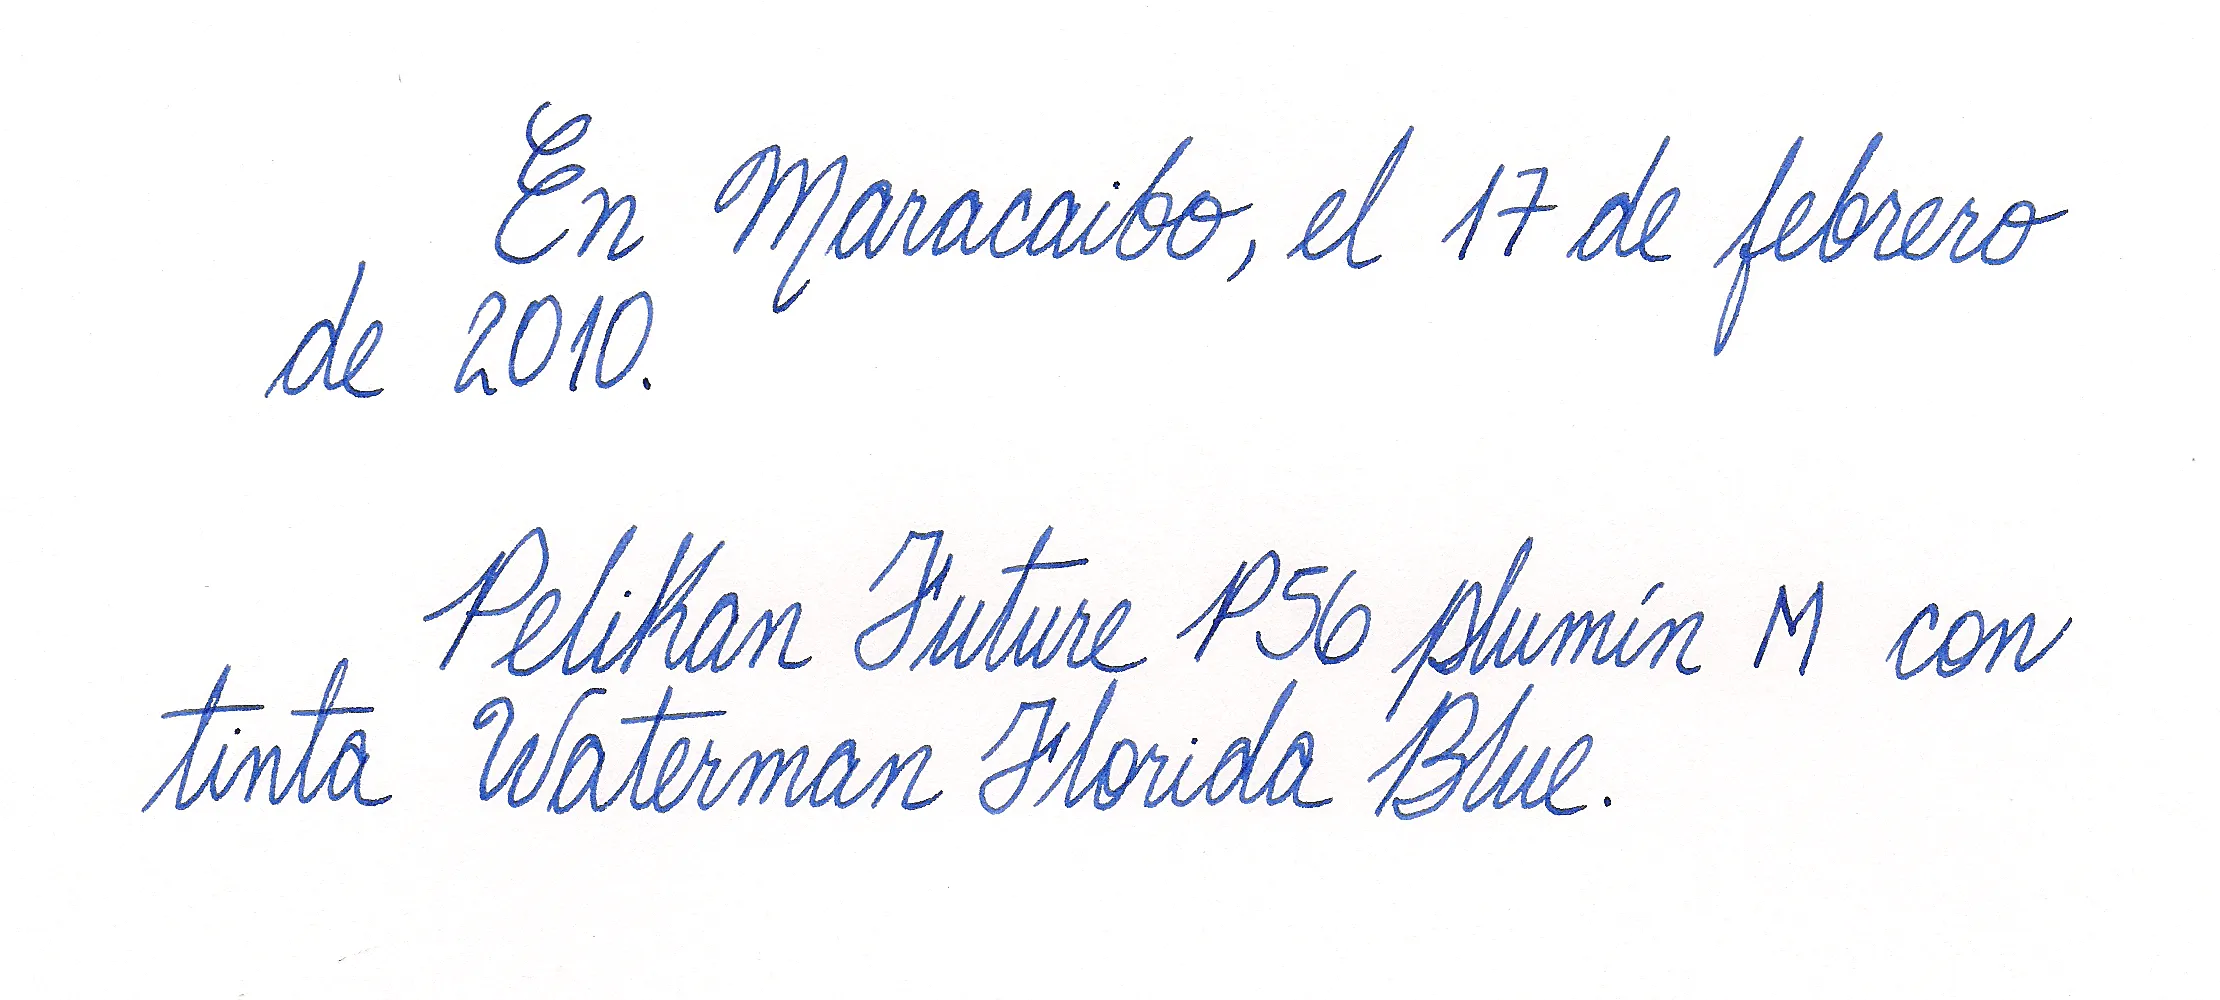 En Maracaibo, el 17 de febrero
de 2010.
Pelikan Future P56 plumín M con
tinta Waterman Florida Blue.